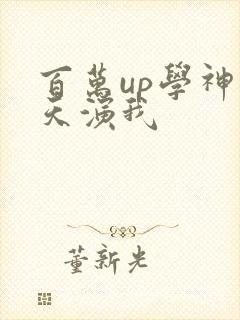 百萬up學神
天演我
董新光